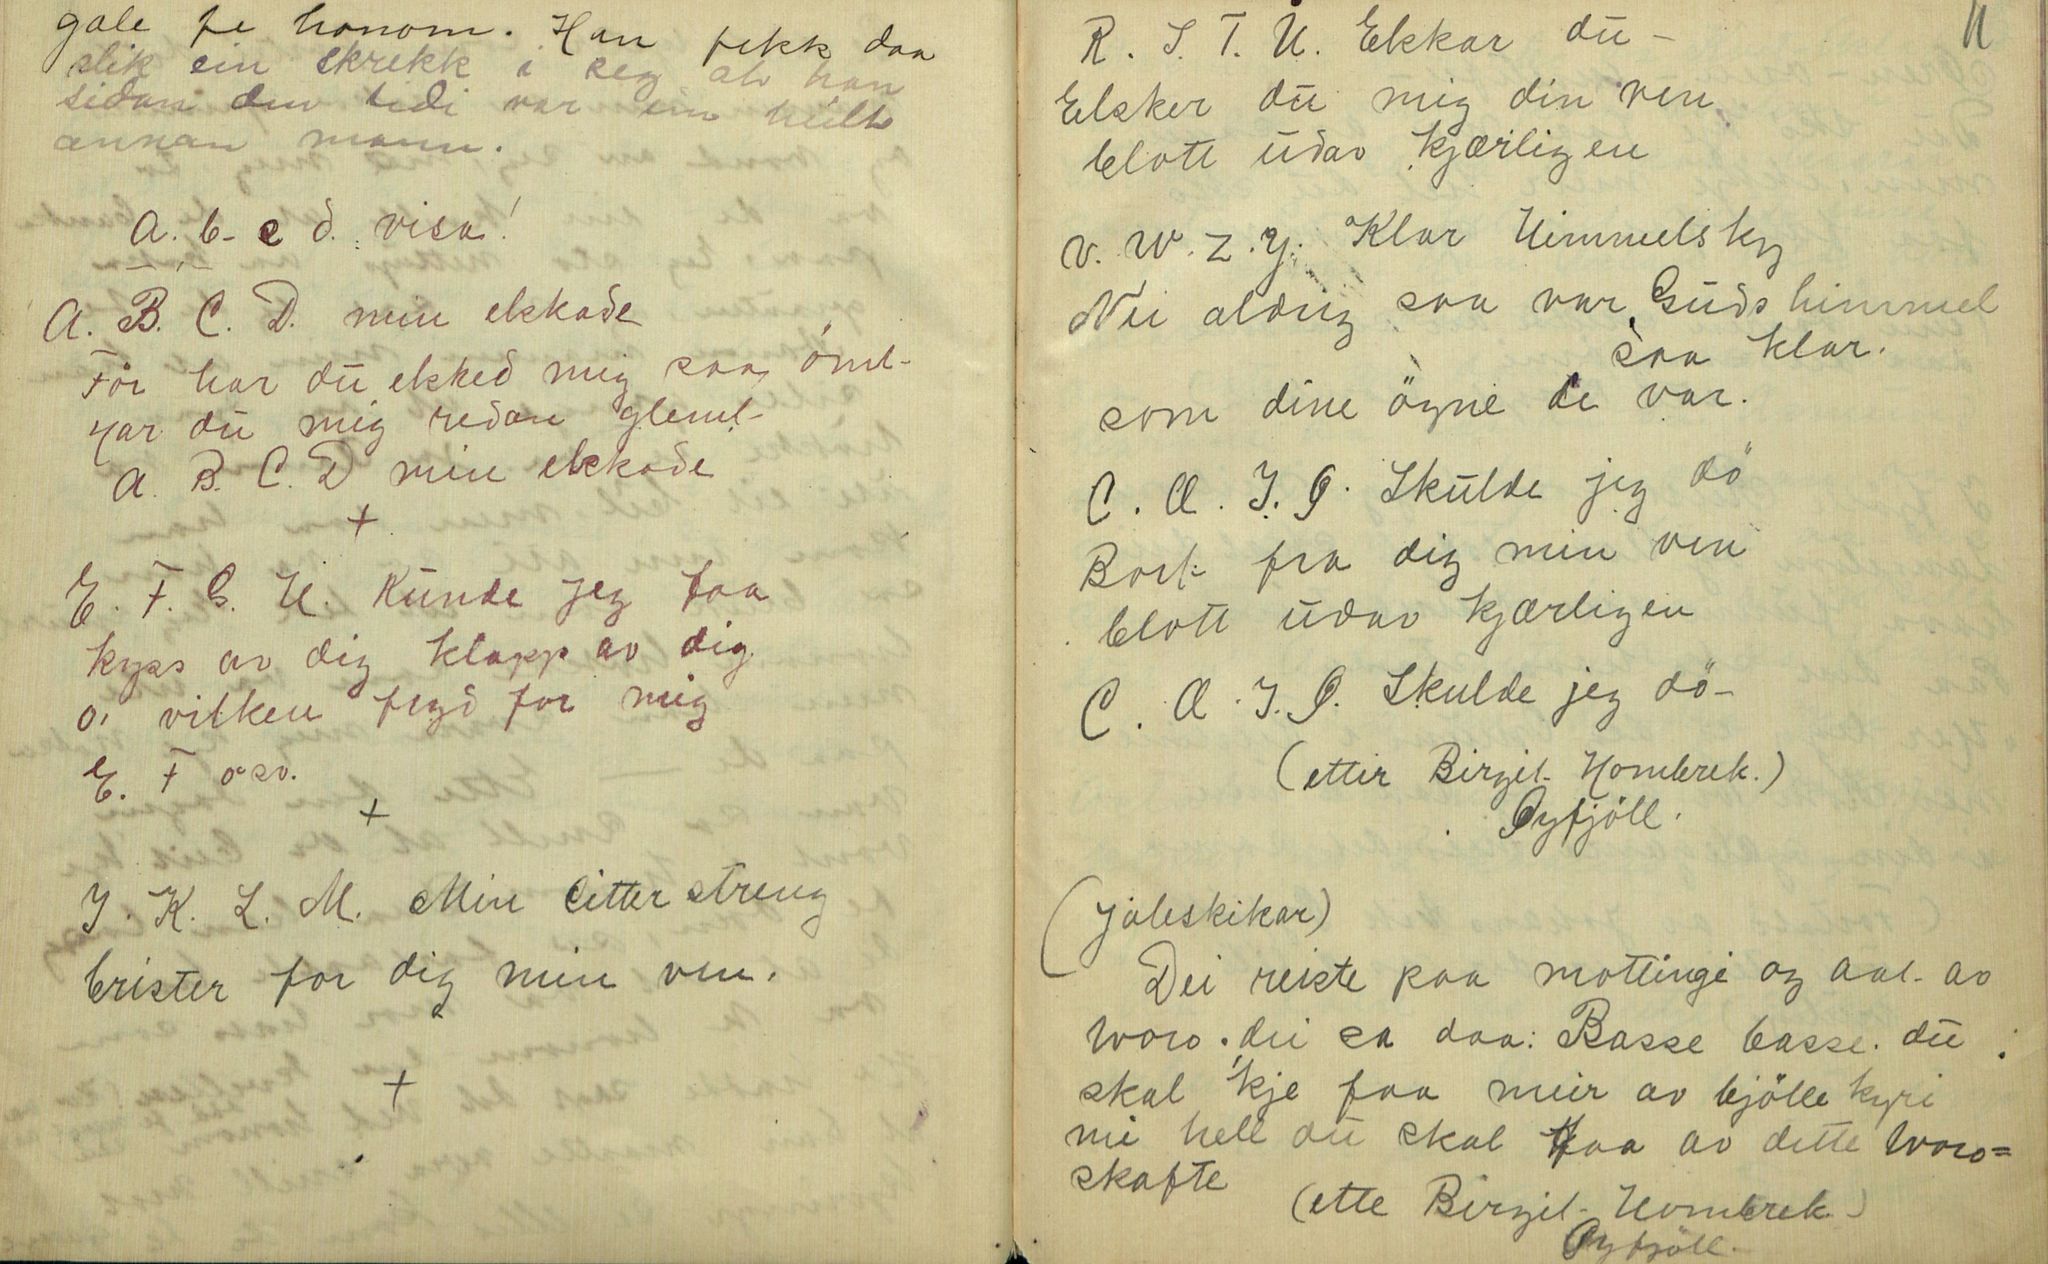 gale fe honom. Han fekk daa
slik ein skrekk i seg at han
sidan den tidi var ein heilt
annan mann.
A. b- c d. visa!
A. B. C. D. min elskade
För har du elsked mig saa ömt-
har du mig redan glemt-
A. B. C. D min elskade
+
E. F. G. H. Kunde jeg faa
kyss av dig klapp av dig
o, vilken fryd for mig
E. F osv.
+
I. K. L. M. Min citter streng
brister for dig min ven.
+
11
R. S. T. U. Elskar du -
Elsker du mig din ven
blott udav kjærligen
V. W. Z. Y. Klar Himmelsky
Nei aldrig saa var Guds himmel
saa klar.
som dine ögne de var.
C. Æ. I. Ø. Skulde jeg dö
Bort fra dig min ven
blott udav kjærligen
C. Æ. I. Ø. Skulde jeg dö-
(etter Birgit Hombrek.)
Øyfjöll.
(Joleskikar)
Dei reiste paa mottingi og aat av
woro. dei sa daa: Basse basse. du
skal 'kje faa meir av bjölle kyri
mi hell du skal faa av dette woro=
skafte
(ette Birgit Hombrek)
Øyfjöll-